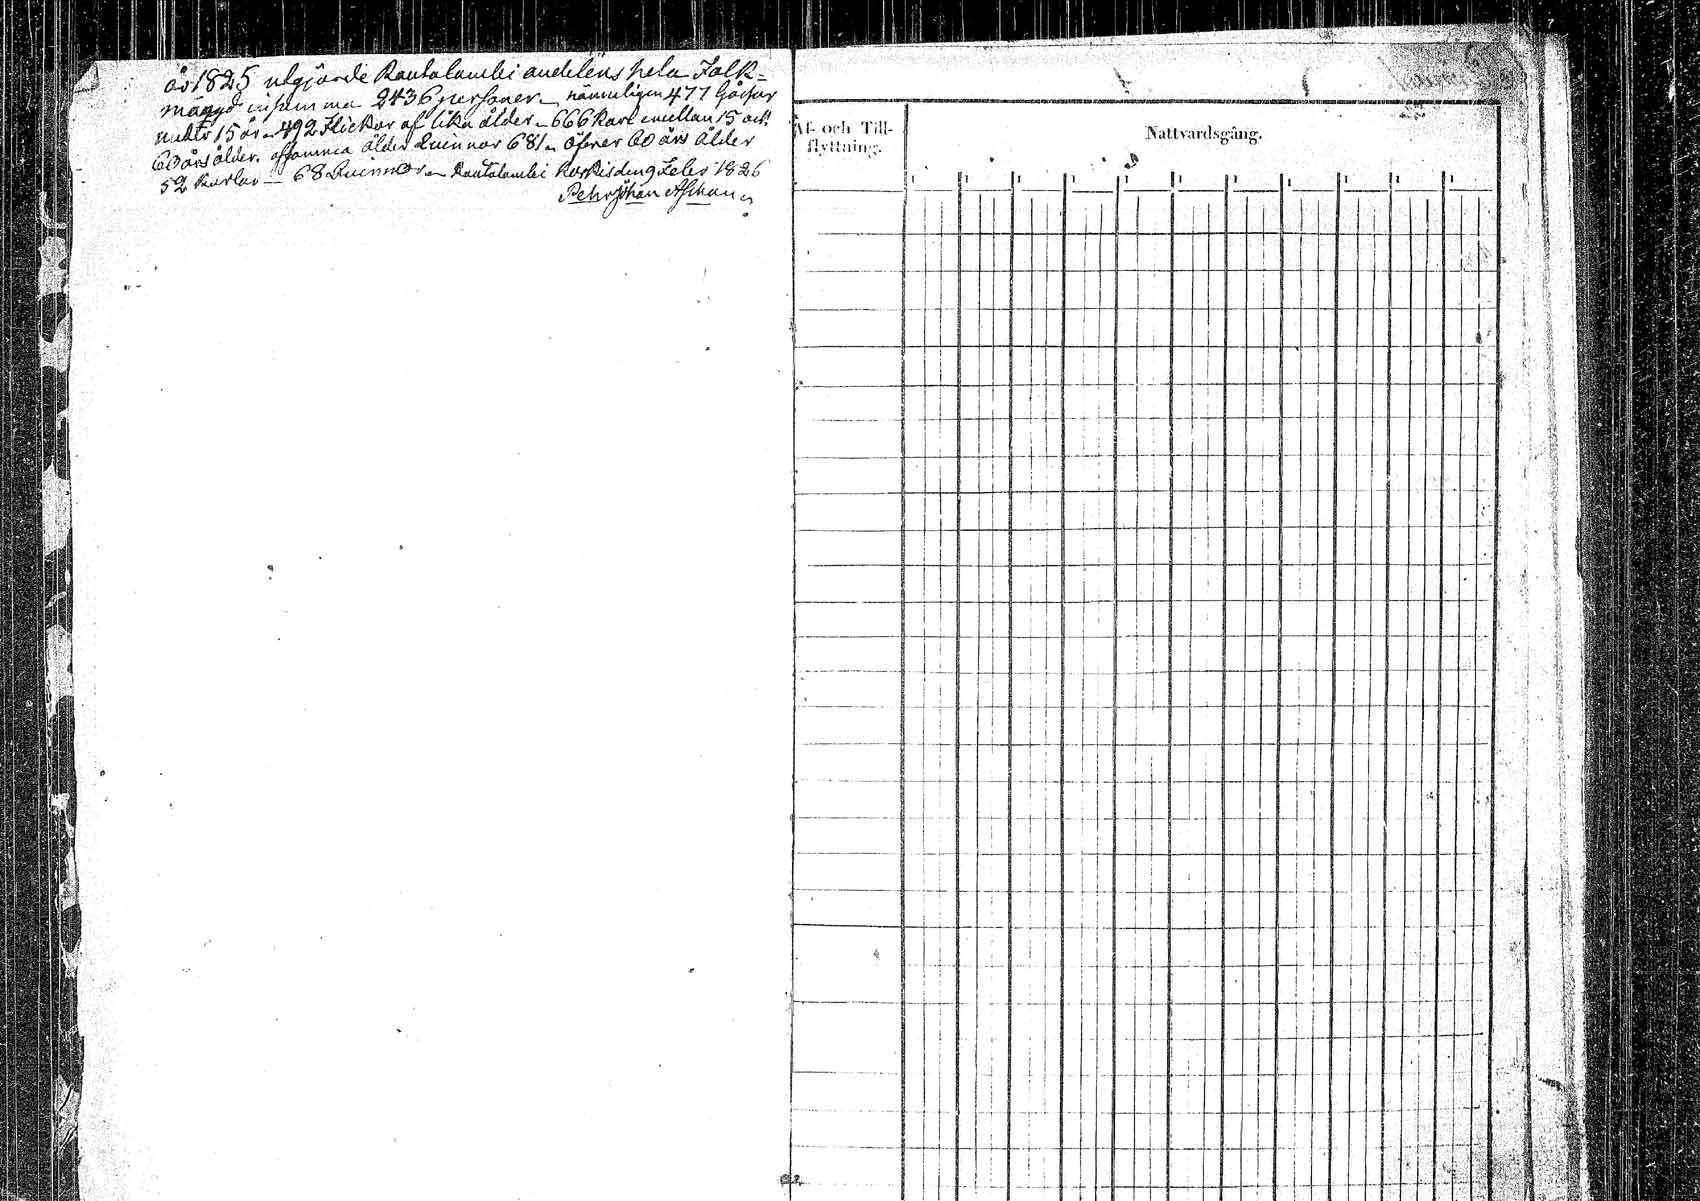 år 1825 utgjorde Rautalambi andelens hela Folk=
mängd inhemma 2436 personer – nämneligen 477 Gossar
under 15 år – 492 Flickor af lika ålder – 666 Karl emellan 15 och
60 års ålder. af samma ålder Quinnor 681 – öfver 60 års ålder
52 Karlar – 68 Quinnor – Rautalambi den 9 Febr 1826
Pehr Johan
Af- och Till-
flyttning.
Nattvardsgång.
1 1 1 1 1 1 1 1 1 1 1